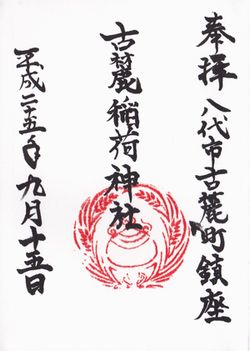 奉拝 八代市古麓町鎮座
古麓稲荷神社
平成二十五年九月十五日